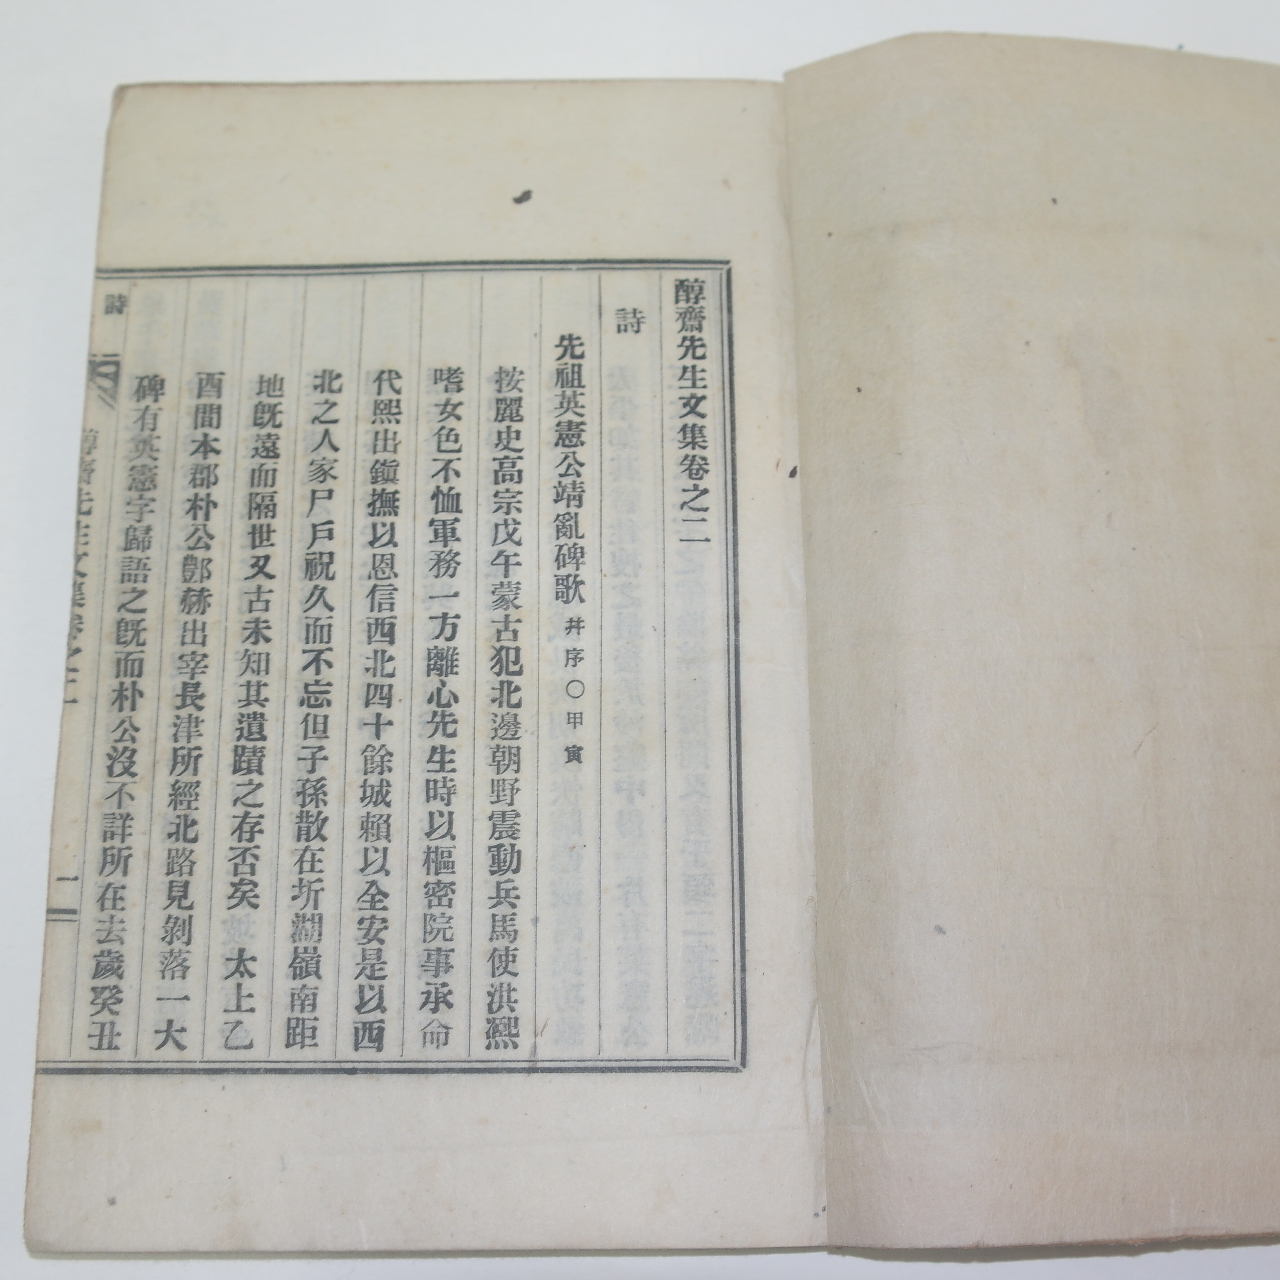 醇齋先生文集卷之二
詩
先祖英憲公靖亂碑歌 幷序○甲寅
按麗史高宗戊午蒙古犯北邊朝野震動兵馬使洪熙
嗜女色不恤軍務一方離心先生時以樞密院事承命
代熙出鎭撫以恩信西北四十餘城賴以全安是以西
北之人家尸戶祝久而不忘但子孫散在圻湖嶺南距
地旣遠而隔世又古未知其遺蹟之存否矣 太上乙
酉間本郡朴公鄷赫出宰長津所經北路見剝落一大
碑有英憲字歸語之旣而朴公沒不詳所在去歲癸丑
詩
醇齋先生文集卷之二
一